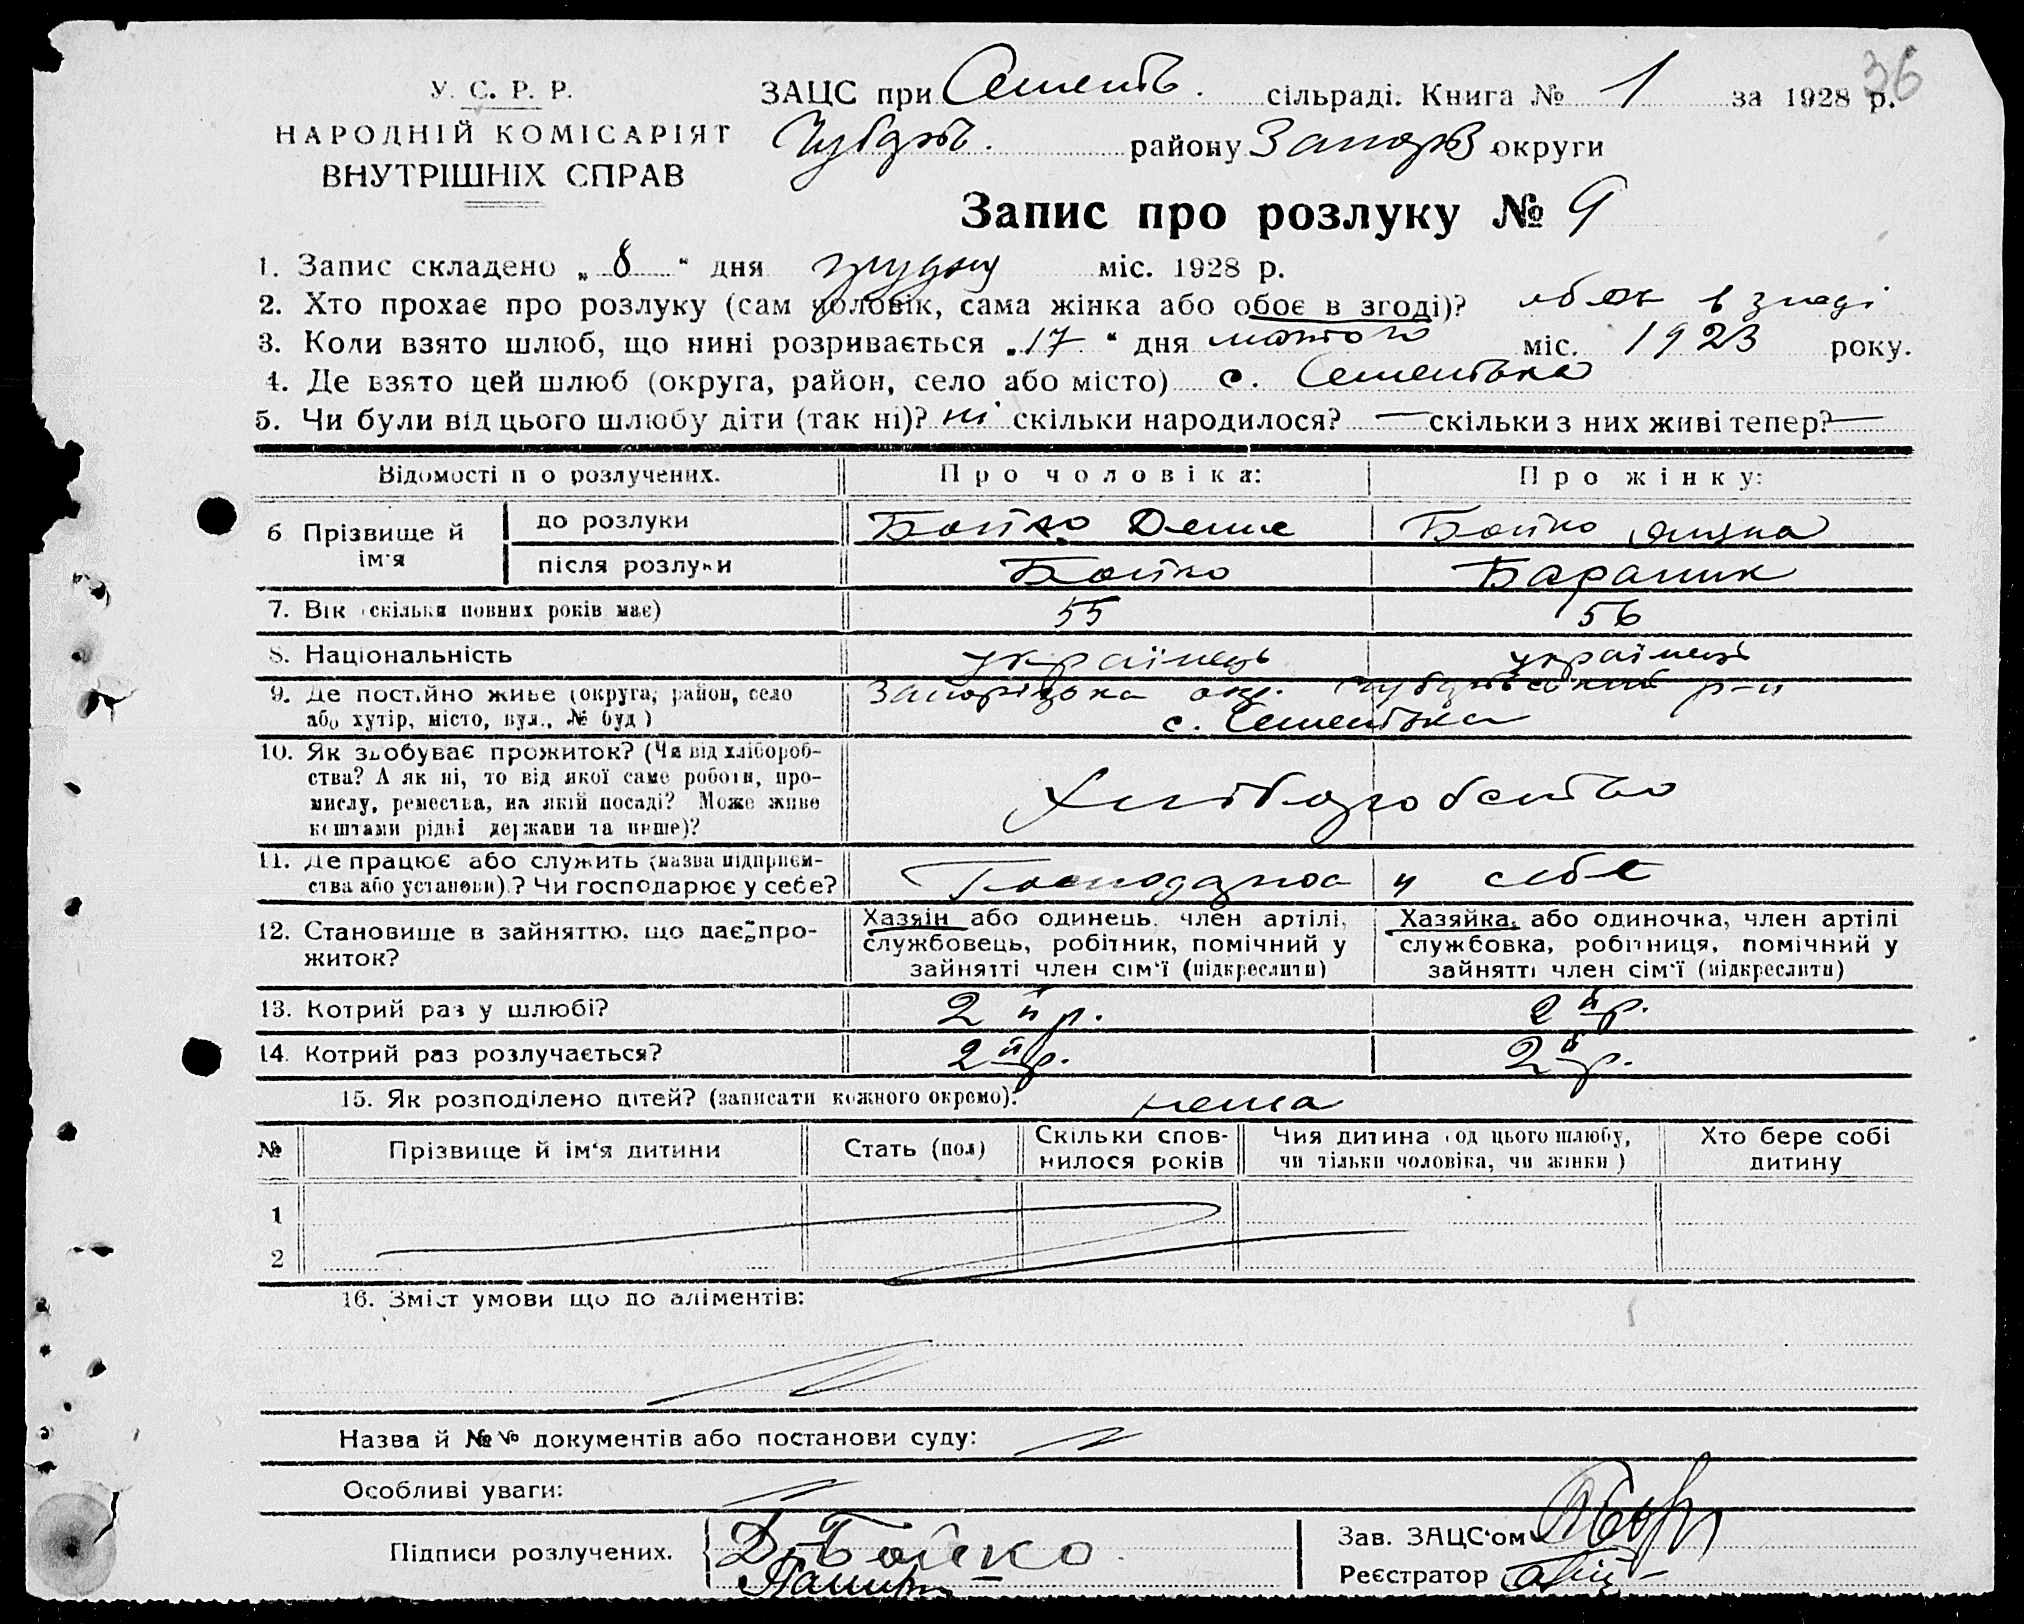 36
У. С. Р. Р.
НАРОДНІЙ КОМІСАРІЯТ
ВНУТРІШНІХ СПРАВ
ЗАЦС при Сементь. сільраді. Книга № 1 за 1928 р.
Чубарів. району Запоріз округи
Запис про розлуку № 9
1. Запис складено „ 8 “ дня грудня міс. 1928 р.
2. Хто прохає про розлуку (сам чоловік, сама жінка або обоє в згоді)? обоє в згоді
3. Коли взято шлюб, що нині розривається „ 17 “ дня лютого міс. 1923 року.
4. Де взято цей шлюб (округа, район, село або місто) с.
5. Чи були від цього шлюбу діти (так ні)? ні скільки народилося? — скільки з них живі тепер? —
Відомості п о розлучених. Про чоловіка: Про жінку:
6 Прізвище й ім'я до розлуки Бойко Бойко
після розлуки Бойко Бараник
7. Вік (скільки повних років має) 55 56
8. Національність українець українець
9. Де постійно живе (округа, район, село або хутір, місто, вул., № буд) Запорізька окр. р-н
с.
10. Як здобуває прожиток? (Чи від хлібороб-
ства? А як ні, то від якої саме роботи, про-
мислу, ремества, на якій посаді? Може живе
коштами рідні держави та инше)? Хліборобство
11. Де працює або служить (назва підприєм-
ства або установи)? Чи господарює у себе? Господарює у себе
12. Становище в зайняттю, що дає про-
житок?
Хазяїн або одинець, член артілі,
службовець, робітник, помічний у
зайнятті член сім'ї (підкреслити)
Хазяйка, або одиночка, член артілі
службовка, робітниця, помічний у
зайнятті член сім'ї (підкреслити)
13. Котрий раз у шлюбі? 2 й р. 2 й р.
14. Котрий раз розлучається? 2 й р. 2 й р.
15. Як розподілено дітей? (записати кожного окремо). нема
№ Прізвище й ім'я дитини Стать (пол) Скільки спов-
нилося років Чия дитина (од цього шлюбу,
чи тільки чоловіка, чи жінки) Хто бере собі
дитину
1
2
16. Зміст умови що до аліментів:
Назва й №№ документів або постанови суду:
Особливі уваги:
Підписи розлучених. Д. Бойко
Зав. ЗАЦС'ом
Реєстратор